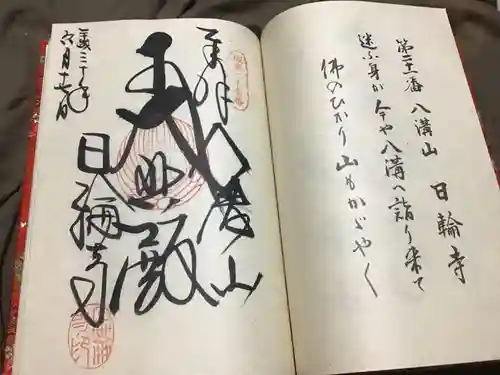 第二十一番 八溝山 日輪寺
迷ふ身が今や八溝へ詣り来て
佛のひかり山もかゞやく
奉拝
八溝山
大悲殿
日輪寺
平成三十年
六月十七日